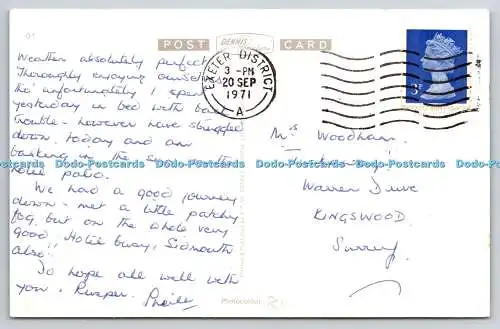 01
POST CARD
DENNIS
EXETER DISTRICT
3 - PM
20 SEP
1971
A
3P
Weather absolutely perfect
Thoroughly enjoying ourselves
tho' unfortunately I spent
yesterday in bed with back
trouble - however have struggled
down today and am
basking in the sun on the
hotel patio.
We had a good journey
down - met a little patchy
fog, but on the whole very
good. Hotel busy, Sidmouth
also!!
Do hope all well with
you.
Mrs Woodham
Warren Drive
KINGSWOOD
Surrey
Photocolour
Dodo-Postcards Dodo-Postcards Dodo-Postcards Dodo-Postcards Dodo-Postcards